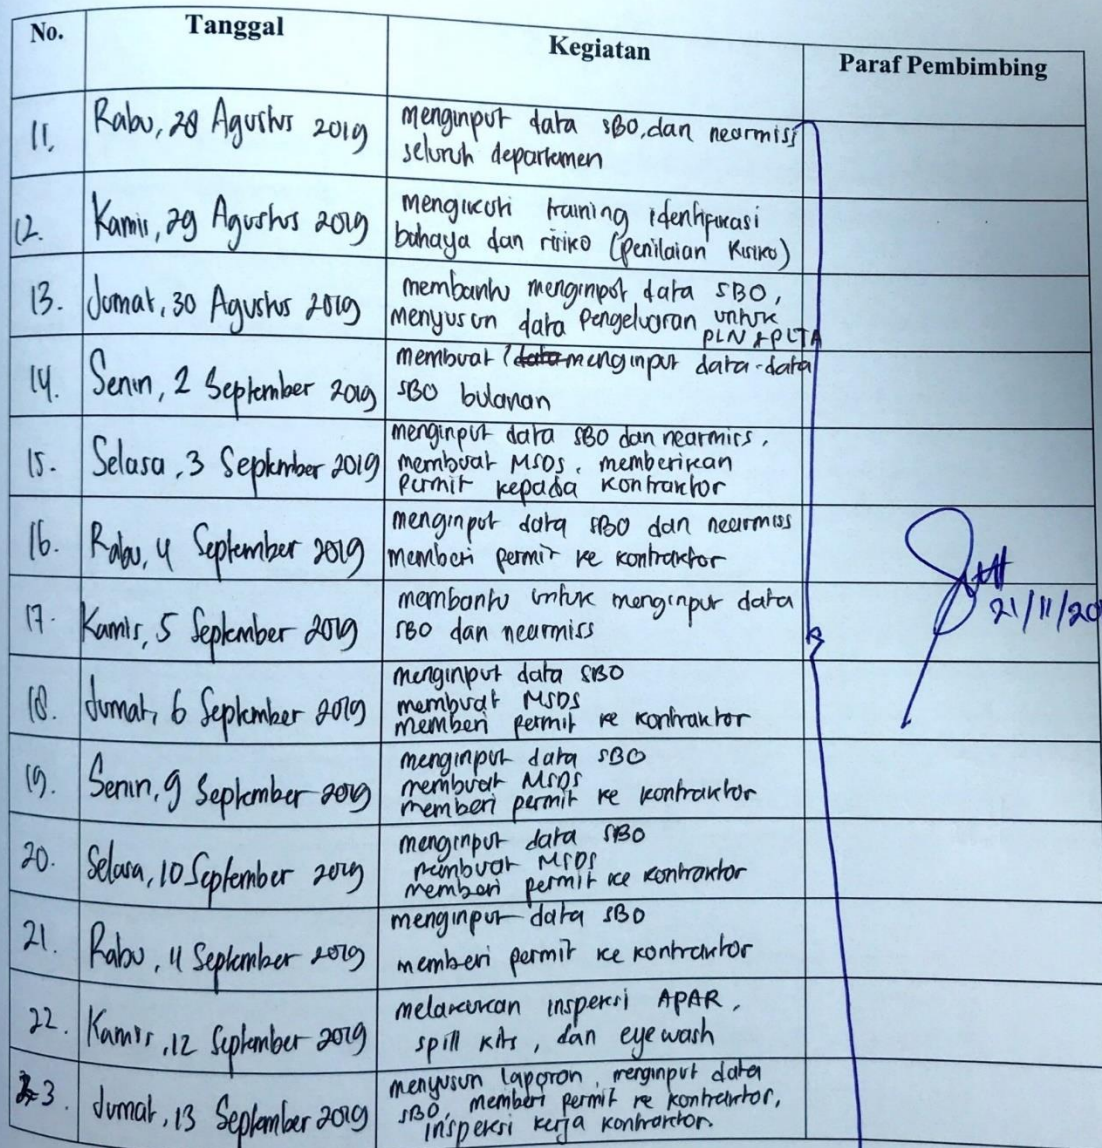 No. Tanggal Kegiatan Paraf Pembimbing
11. Rabu, 28 Agustus 2019 menginput data SBO, dan nearmiss
seluruh departemen
12. Kamis, 29 Agustus 2019 mengikuti training identifikasi
bahaya dan risiko (Penilaian Risiko)
13. Jumat, 30 Agustus 2019 membantu menginput data SBO,
menyusun data Pengeluaran untuk
PLN & PLTA
14. Senin, 2 September 2019 membuat / data menginput data-data
SBO bulanan
15. Selasa, 3 September 2019 menginput data SBO dan nearmiss,
membuat MSDS, memberikan
permit kepada kontraktor
16. Rabu, 4 September 2019 menginput data SBO dan nearmiss
memberi permit ke kontraktor
17. Kamis, 5 September 2019 membantu untuk menginput data
SBO dan nearmiss
21/11/20
18. Jumat, 6 September 2019 menginput data SBO
membuat MSDS
memberi permit ke kontraktor
19. Senin, 9 September 2019 menginput data SBO
membuat MSDS
memberi permit ke kontraktor
20. Selasa, 10 September 2019 menginput data SBO
membuat MSDS
memberi permit ke kontraktor
21. Rabu, 11 September 2019 menginput data SBO
memberi permit ke kontraktor
22. Kamis, 12 September 2019 melakukan inspeksi APAR,
spill kits, dan eye wash
23. Jumat, 13 September 2019 menyusun laporan, menginput data
SBO, memberi permit ke kontraktor,
inspeksi kerja kontraktor.